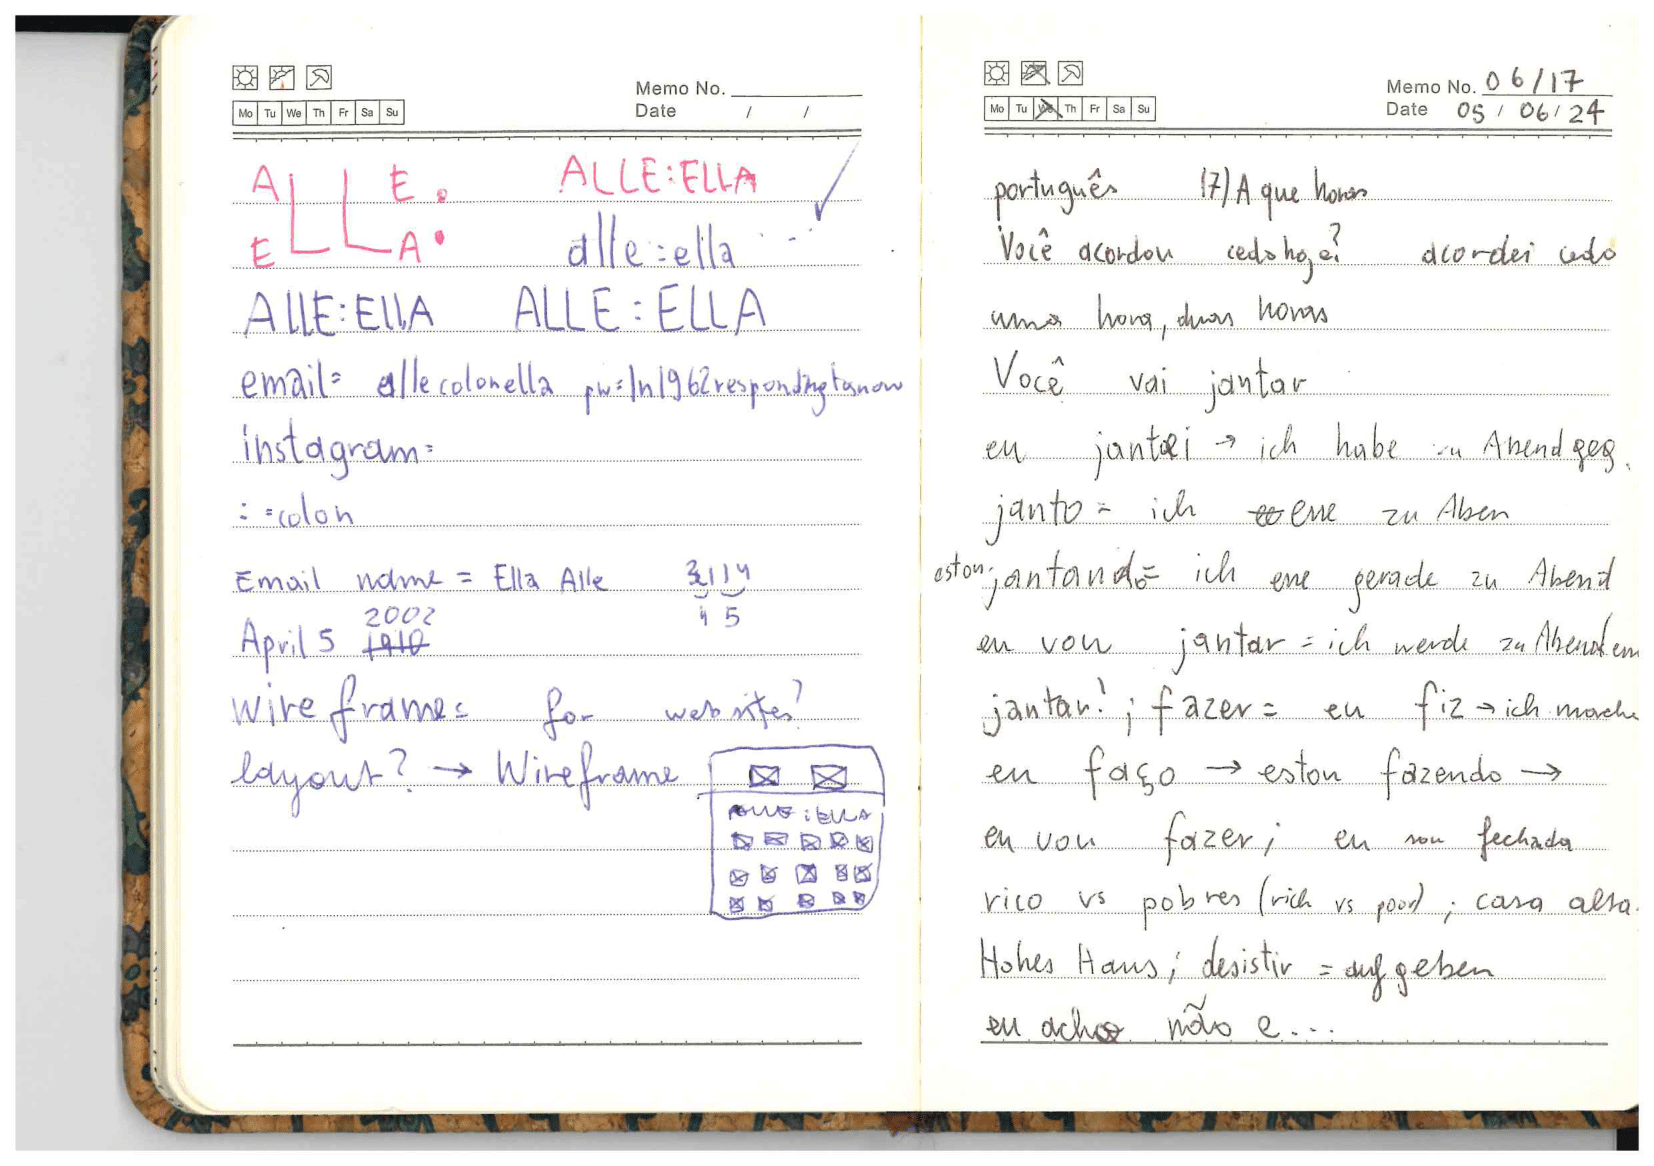 Memo No.
Date / /
Mo Tu We Th Fr Sa Su
A L L E .
E A .
ALLE:ELLA
alle:ella
ALLE:EllA ALLE:ELLA
email= allecolonella pw=
instagram=
: =colon
Email name = Ella Alle 3114
4 5
2002
April 5 1910
wireframes for websites?
layout? → Wireframe
ALLE:ELLA
Memo No. 06/17
Date 05/06/24
Mo Tu We Th Fr Sa Su
português 17) A que horas
Você acordou cedo hoje? acordei cedo
uma hora, duas horas
Você vai jantar
eu jantei → ich habe zu Abend geg.
janto = ich esse zu Aben
estou jantando= ich esse gerade zu Abend
eu vou jantar = ich werde zu Abend essen
jantar! ; fazer = eu fiz → ich mache
eu faço → estou fazendo →
eu vou fazer; eu sou fechada
rico vs pobres (rich vs poor) ; casa alta.
Hohes Haus; desistir = aufgeben
eu acho não e...